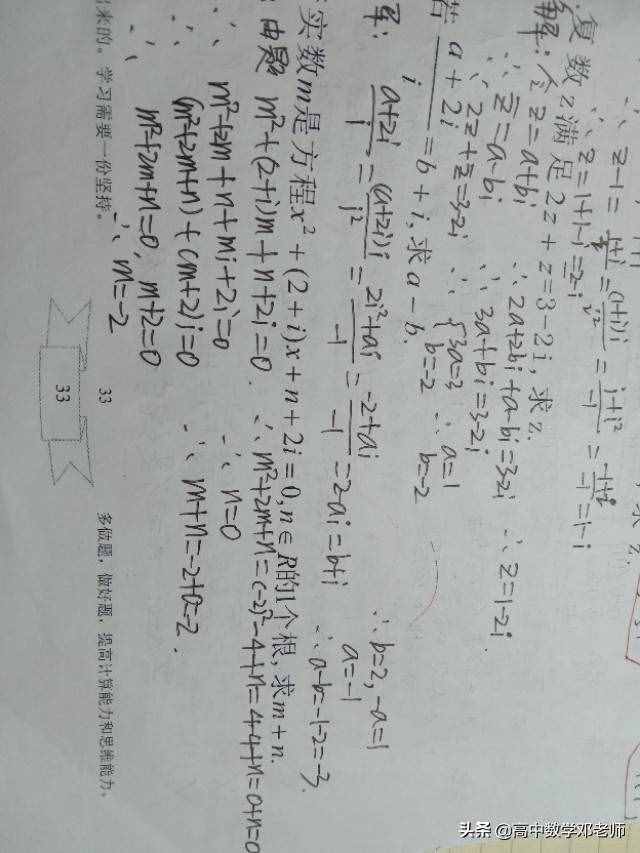 ∴ z-1=(1+i)/i=(1+i)i/i²=(i+i²)/-1=(-1+i)/-1=1-i
∴ z=1+1-i=2-i
复数z满足2z+z̄=3-2i,求z.
解:令z=a+bi ∴2a+2bi+a-bi=3-2i ∴z=1-2i.
∴z̄=a-bi ∴3a+bi=3-2i
∴2z+z̄=3-2i ∴{3a=3 b=-2 ∴a=1 b=-2
若(a+2i)/i=b+i,求a-b.
(a+2i)/i=(a+2i)i/i²=(2i²+ai)/-1=(-2+ai)/-1=2-ai=b+i
∴b=2,-a=1
a=-1
∴a-b=-1-2=-3.
实数m是方程x²+(2+i)x+n+2i=0,n∈R的1个根,求m+n.
由题 m²+(2+i)m+n+2i=0. ∴m²+2m+n=(-2)²-4+n=4-4+n=0+n=0
∴m²+2m+n+mi+2i=0 ∴n=0
∴(m²+2m+n)+(m+2)i=0 ∴m+n=-2+0=-2.
∴m²+2m+n=0,m+2=0
∴m=-2
出来的。学习需要一份坚持。
33
33
多做题,做好题,提高计算能力和思维能力。
头条 @高中数学邓老师